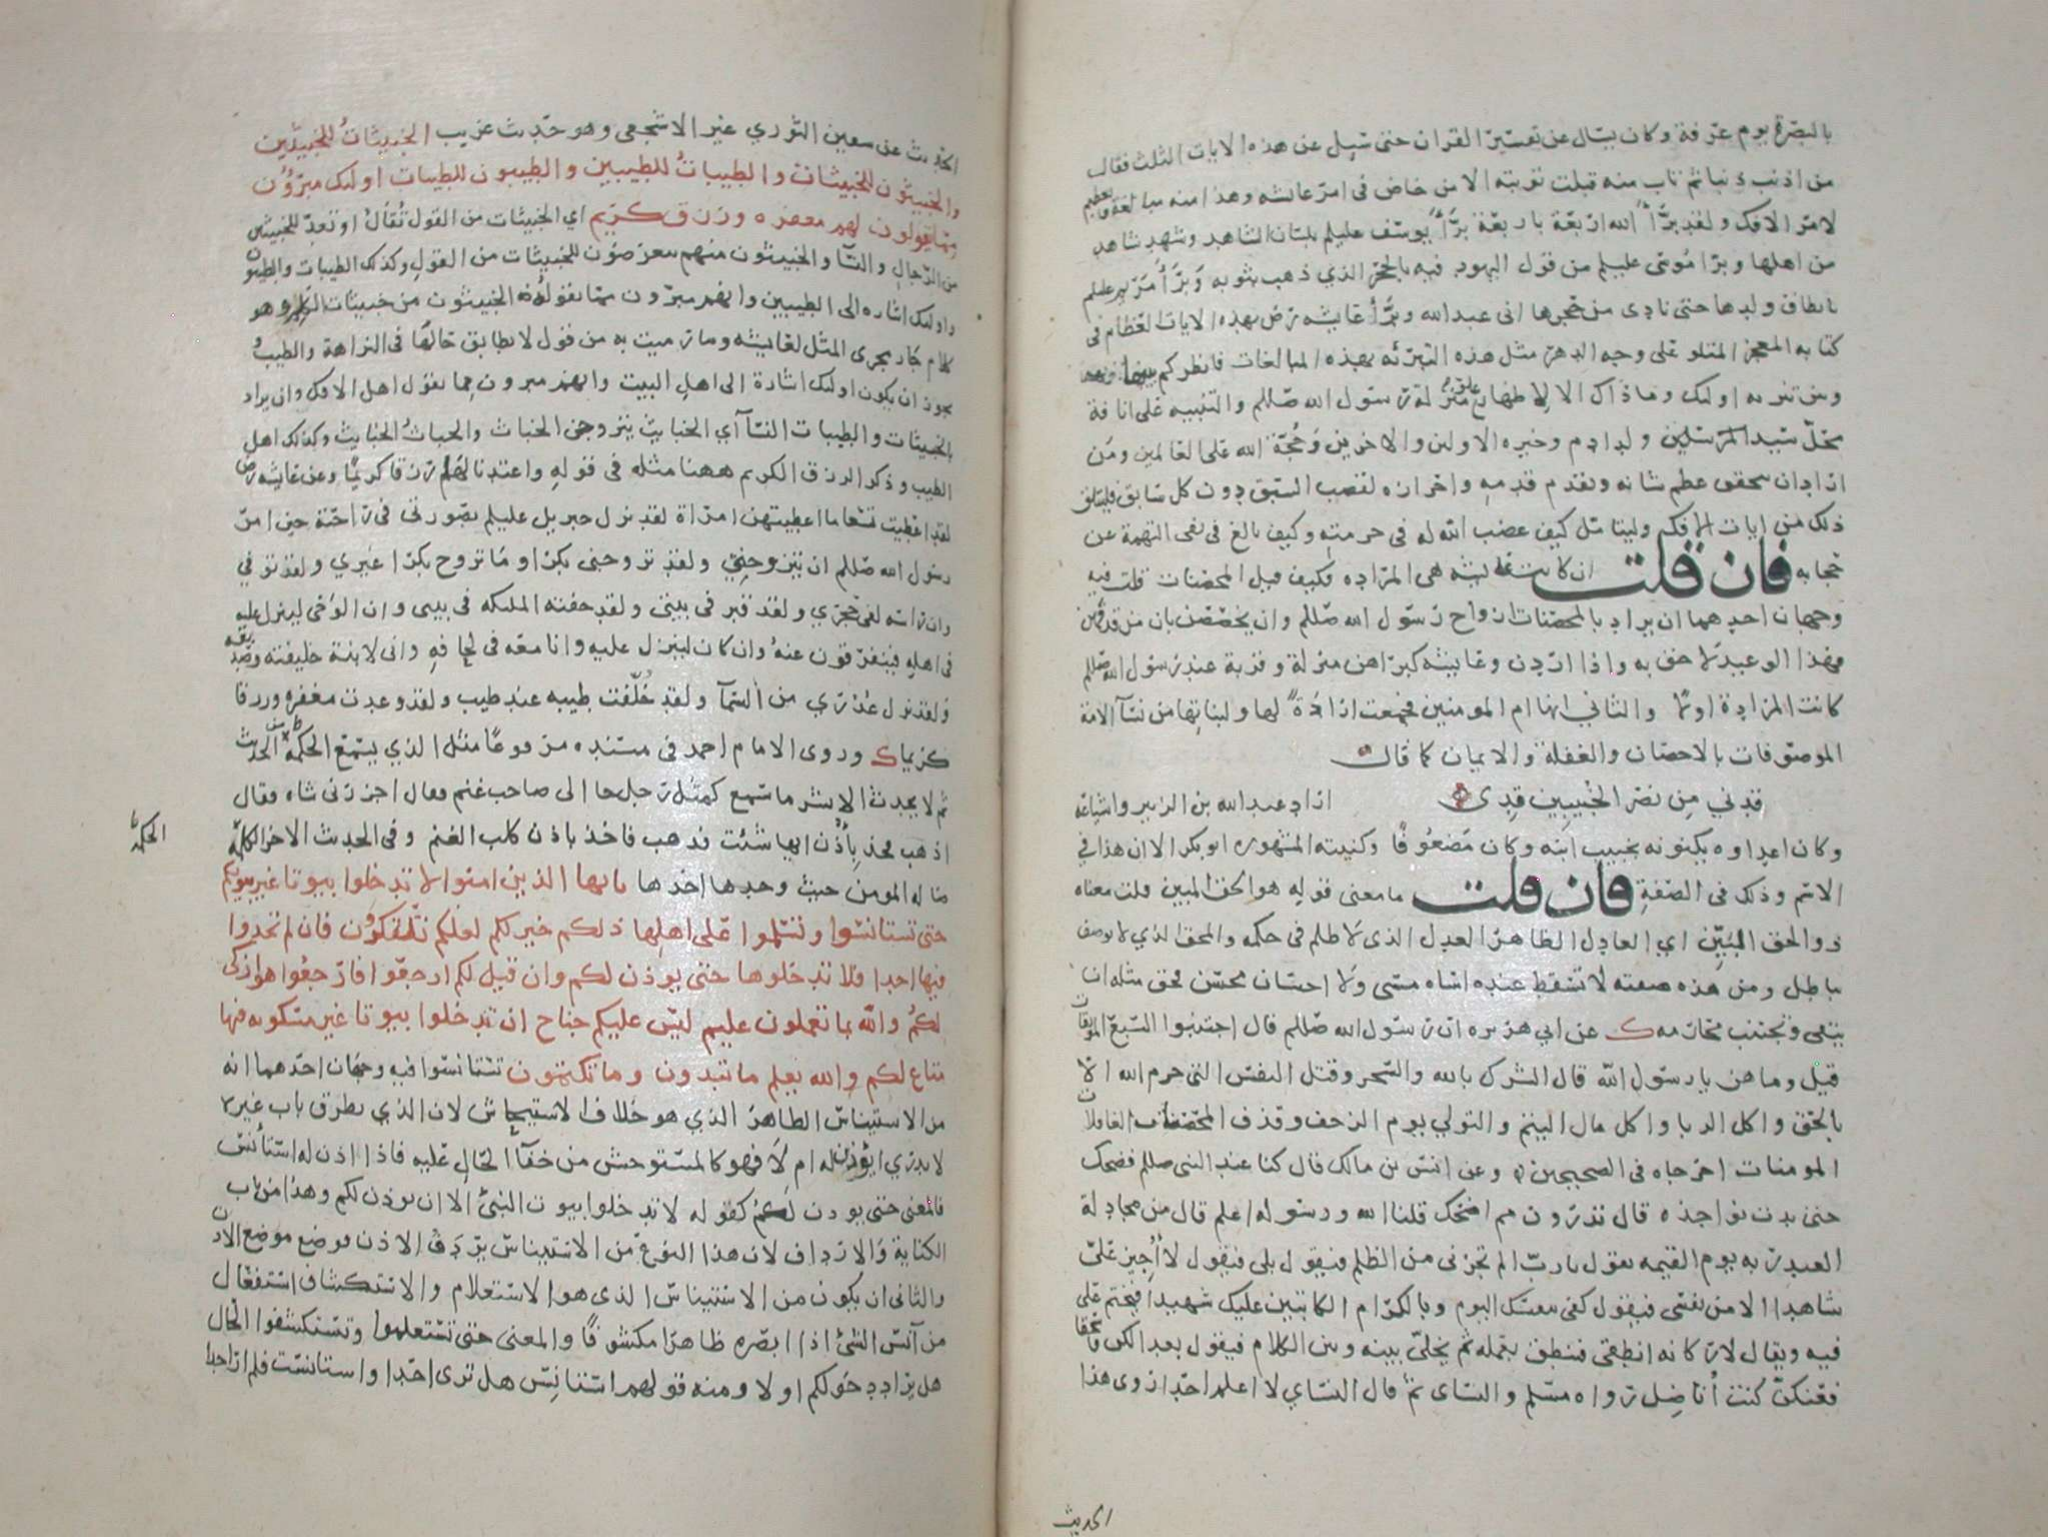 بالبصرة يوم عرفة وكان يسال عن تفسير القران حتى سيل عن هذه الايات الثلث فقال
من اذنب ذنبا ثم تاب منه قبلت توبته الا من خاض فى امر عائشه وهذا منه مبالغة وتعظيم
لامر الافك ولقد برّأ الله اربعة باربعة برّأ يوسف عليلم بلسان الشاهد وشهد شاهد
من اهلها وبرا موسى عليلم من قول اليهود فيه بالحجر الذي ذهب بثوبه وبرّأ مريم عليلم
بانطاق ولدها حتى نادى من حجرها انى عبد الله وبرّأ عايشه رض بهذه الايات العظام فى
كتابه المعجز المتلو على وجه الدهر مثل هذه التبرئه بهذه المبالغات فانظر كم بينها
وبين تبريه اولئك وما ذاك الا لاظهار علو منزلة رسول الله صللم والتنبيه على انافة
محلّ سيد المرسلين ولد ادم وخيره الاولين والاخرين وحجة الله على العالمين ومن
اراد ان يتحقق عظم شانه وتقدم قدمه واحرازه لقصب السبق دون كل سابق فليتلق
ذلك من ايات الافك وليتامل كيف غضب الله له فى حرمته وكيف بالغ فى نفى التهمة عن
حجابه فان قلت ان كانت عايشه هى المراده فكيف قيل المحصنات قلت فيه
وجهان احدهما ان يراد بالمحصنات ازواج رسول الله صللم وان يخصصن بان من قذفهن
فهذا الوعيد لاحق به واذا اردن وعايشه كبراهن منزلة وقربة عند رسول الله صللم
كانت المرادة اولا والثانى انها ام المومنين فجمعت ارادة لها ولبناتها من نسآ الامة
الموصوفات بالاحصان والغفلة والايمان كما قال
قدني من نصر الخبيبين قدى اراد عبد الله بن الزبير واشياعه
وكان اعداوه يكنونه بخبيب ابنه وكان مضعوفا وكنيته المشهوره ابو بكر الا ان هذا في
الاسم وذلك فى الصفة فان قلت ما معنى قوله هو الحق المبين قلت معناه
ذو الحق المبين اي العادل الظاهر العدل الذى لا ظلم فى حكمه والمحق الذي لا يوصف
بباطل ومن هذه صفته لا تسقط عنده اساه مسى ولا احسان محسن فحق مثله ان
يتقى وتجتنب محارمه ك عن ابي هريره ان رسول الله صللم قال اجتنبوا السبع الموبقات
قيل وما هن يا رسول الله قال الشرك بالله والسحر وقتل النفس التى حرم الله الا
بالحق واكل الربا واكل مال اليتيم والتولي يوم الزحف وقذف المحصنات الغافلات
المومنات اخرجاه فى الصحيحين وعن انس بن مالك قال كنا عند النبى صللم فضحك
حتى بدت نواجذه قال تدرون مم اضحك قلنا الله ورسوله اعلم قال من مجادلة
العبد ربه يوم القيمه يقول يا ربّ الم تجرنى من الظلم فيقول بلى فيقول لا أُجيز علىّ
شاهدا الا من نفسى فيقول كفى بنفسك اليوم وبالكرام الكاتبين عليك شهيدا فيختم على
فيه ويقال لاركانه انطقى فتنطق بعمله ثم يخلىّ بينه وبين الكلام فيقول بعدا لكن وسحقا
فعنكنّ كنت أناضل رواه مسلم والنساى ثم قال النساي لا اعلم احدا روى هذا
الحديث
الحديث عن سفين الثوري غير الاشجعى وهو حديث غريب الخبيثات للخبيثين
والخبيثون للخبيثات والطيبات للطيبين والطيبون للطيبات اولئك مبرؤن
مما يقولون لهم مغفره ورزق كريم اي الخبيثات من القول تُقال او تعدّ للخبيثين
من الرجال والنسآ والخبيثون منهم معرضون للخبيثات من القول وكذلك الطيبات والطيبون
واولئك اشاره الى الطيبين وانهم مبرّون مما يقوله الخبيثون من خبيثات الكلم وهو
كلام جار مجرى المثل لعايشه وما رميت به من قول لا يطابق حالها فى النزاهة والطيب
يجوز ان يكون اولئك اشارة الى اهل البيت وانهم مبرون مما يقول اهل الافك وان يراد
بالخبيثات والطيبات النسآ اي الخبايث يتزوجن الخباث والخباثُ الخبايث وكذلك اهل
الطيب وذكر الرزق الكريم ههنا مثله فى قوله واعتدنا لها رزقا كريمًا وعن عايشه رض
لقد اعطيت تسعا ما اعطيتهن امراة لقد نزل جبريل عليلم بصورتى فى راحته حين امر
رسول الله صللم ان يتزوجني ولقد تزوجنى بكرا وما تزوج بكرا غيري ولقد توفي
وان راسه لفى حجري ولقد قبر فى بيتى ولقد حفته الملئكه فى بيتى وان الوحى لينزل عليه
فى اهله فيتفرقون عنه وان كان لينزل عليه وانا معه فى لحافه وانى لابنة خليفته وصديقه
ولقد نزل عذري من السمآ ولقد خُلّقت طيبه عند طيب ولقد وعدت مغفره ورزقا
كريما ك وروى الامام احمد فى مسنده مرفوعا مثل الذي يسمع الحكمة
ثم لا يحدث الا بشر ما سمع كمثل رجل جا الى صاحب غنم فقال اجزرنى شاه فقال
اذهب فخذ بأذن ايها شئت فذهب فاخذ باذن كلب الغنم وفى الحديث الاخر الكلمة
الحكمة
ضاله المومن حيث وجدها اخذها يايها الذين امنوا لا تدخلوا بيوتا غير بيوتكم
حتى تستانسوا وتسلموا على اهلها ذلكم خير لكم لعلكم تذكرون فان لم تجدوا
فيها احدا فلا تدخلوها حتى يوذن لكم وان قيل لكم ارجعوا فارجعوا هو ازكى
لكم والله بما تعملون عليم ليس عليكم جناح ان تدخلوا بيوتا غير مسكونه فيها
متاع لكم والله يعلم ما تبدون وما تكتمون تستانسوا فيه وجهان احدهما انه
من الاستيناس الظاهر الذي هو خلاف الاستيحاش لان الذي يطرق باب غيره
لا يدري ايوذن له ام لا فهو كالمستوحش من خفآ الحال عليه فاذا اذن له استأنس
فالمعنى حتى يوذن لكم كقوله لا تدخلوا بيوت النبىّ الا ان يوذن لكم وهذا من باب
الكناية والارداف لان هذا النوع من الاستيناس يردف الاذن فوضع موضع الاذن
والثانى ان يكون من الاستيناس الذى هو الاستعلام والاستكشاف استفعال
من آنس الشئ اذا ابصره ظاهرا مكشوفًا والمعنى حتى تستعلموا وتستكشفوا الحال
هل يراد دخولكم اولا ومنه قولهم استانِس هل ترى احدا واستانست فلم ار احدا